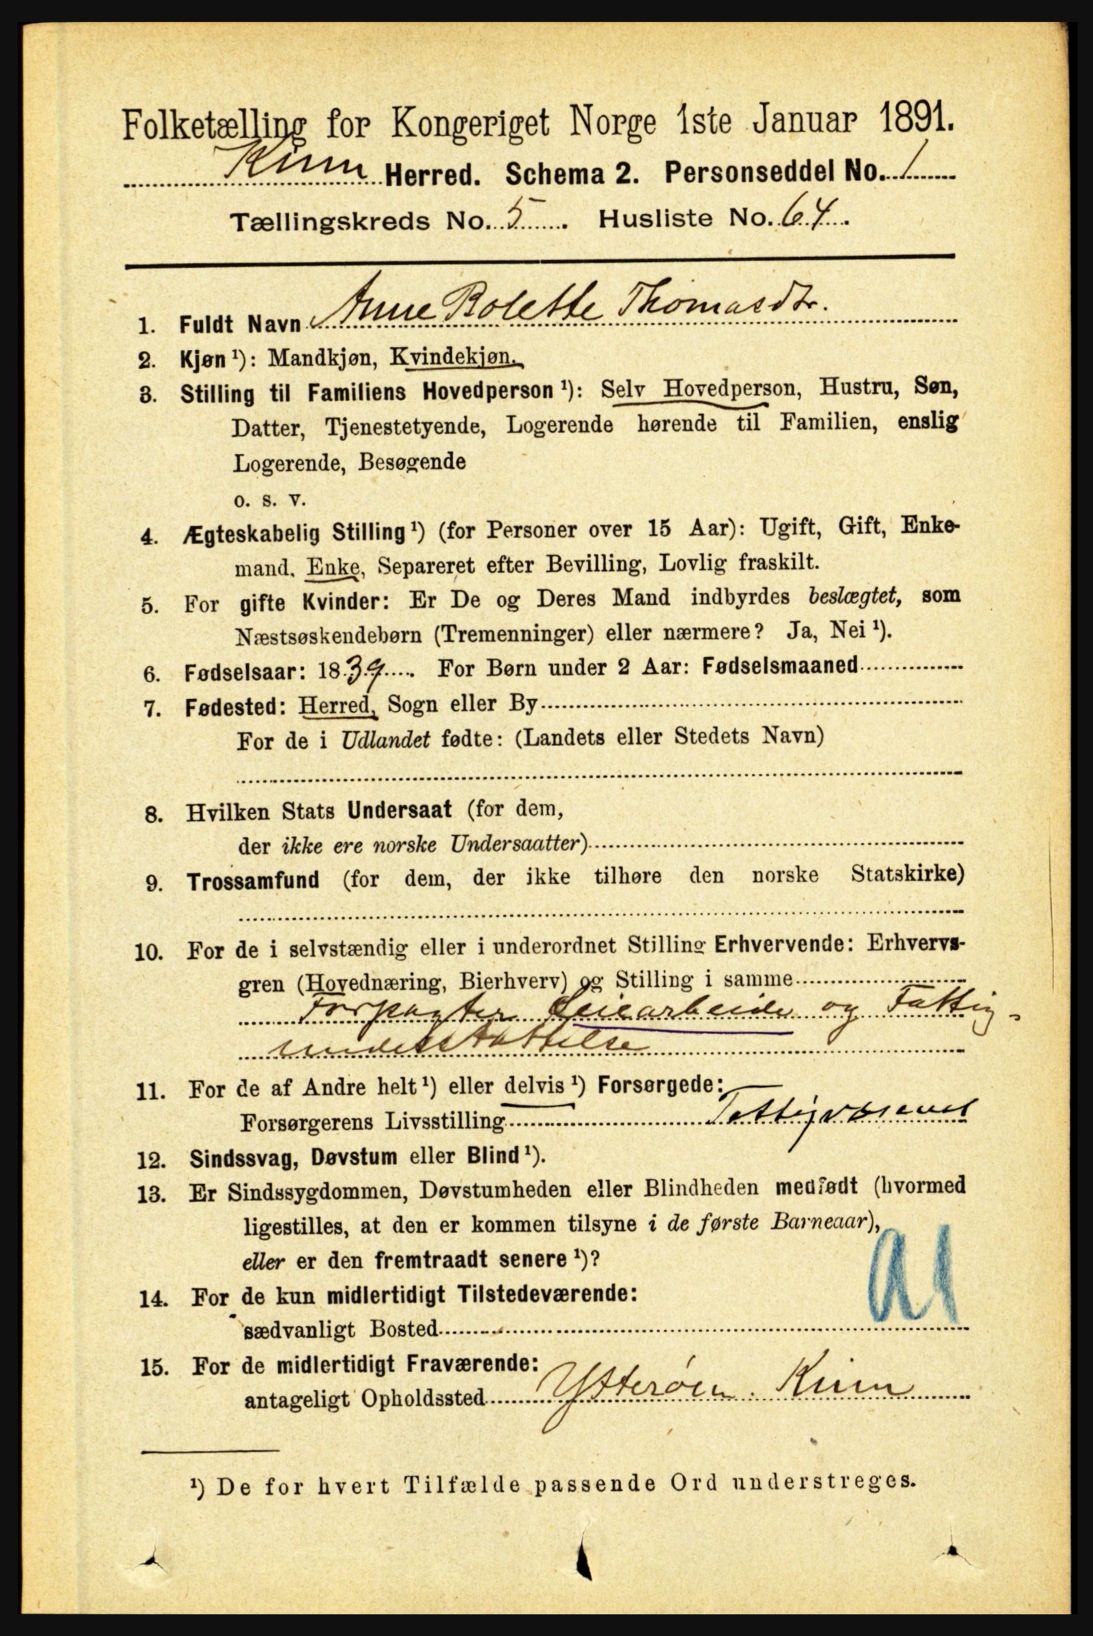 Folketælling for Kongeriget Norge 1ste Januar 1891.
Kinn Herred. Schema 2. Personseddel No. 1
Tællingskreds No. 5. Husliste No. 64.
1. Fuldt Navn Anne Bolette Thomasdtr.
2. Kjøn ¹): Mandkjøn, Kvindekjøn.
3. Stilling til Familiens Hovedperson ¹): Selv Hovedperson, Hustru, Søn,
Datter, Tjenestetyende, Logerende hørende til Familien, enslig
Logerende, Besøgende
o. s. v.
4. Ægteskabelig Stilling ¹) (for Personer over 15 Aar): Ugift, Gift, Enke-
mand, Enke, Separeret efter Bevilling, Lovlig fraskilt.
5. For gifte Kvinder: Er De og Deres Mand indbyrdes beslægtet, som
Næstsøskendebørn (Tremenninger) eller nærmere? Ja, Nei ¹).
6. Fødselsaar: 1839. For Børn under 2 Aar: Fødselsmaaned
7. Fødested: Herred, Sogn eller By
For de i Udlandet fødte: (Landets eller Stedets Navn)
8. Hvilken Stats Undersaat (for dem,
der ikke ere norske Undersaatter)
9. Trossamfund (for dem, der ikke tilhøre den norske Statskirke)
10. For de i selvstændig eller i underordnet Stilling Erhvervende: Erhvervs-
gren (Hovednæring, Bierhverv) og Stilling i samme
Forpagter Leiearbeide og Fattig-
understøttelse
11. For de af Andre helt ¹) eller delvis ¹) Forsørgede:
Forsørgerens Livsstilling Fattigvæsenet
12. Sindssvag, Døvstum eller Blind ¹).
13. Er Sindssygdommen, Døvstumheden eller Blindheden medfødt (hvormed
ligestilles, at den er kommen tilsyne i de første Barneaar),
eller er den fremtraadt senere ¹)?
14. For de kun midlertidigt Tilstedeværende:
sædvanligt Bosted
15. For de midlertidigt Fraværende:
antageligt Opholdssted Ytterøen. Kinn
¹) De for hvert Tilfælde passende Ord understreges.